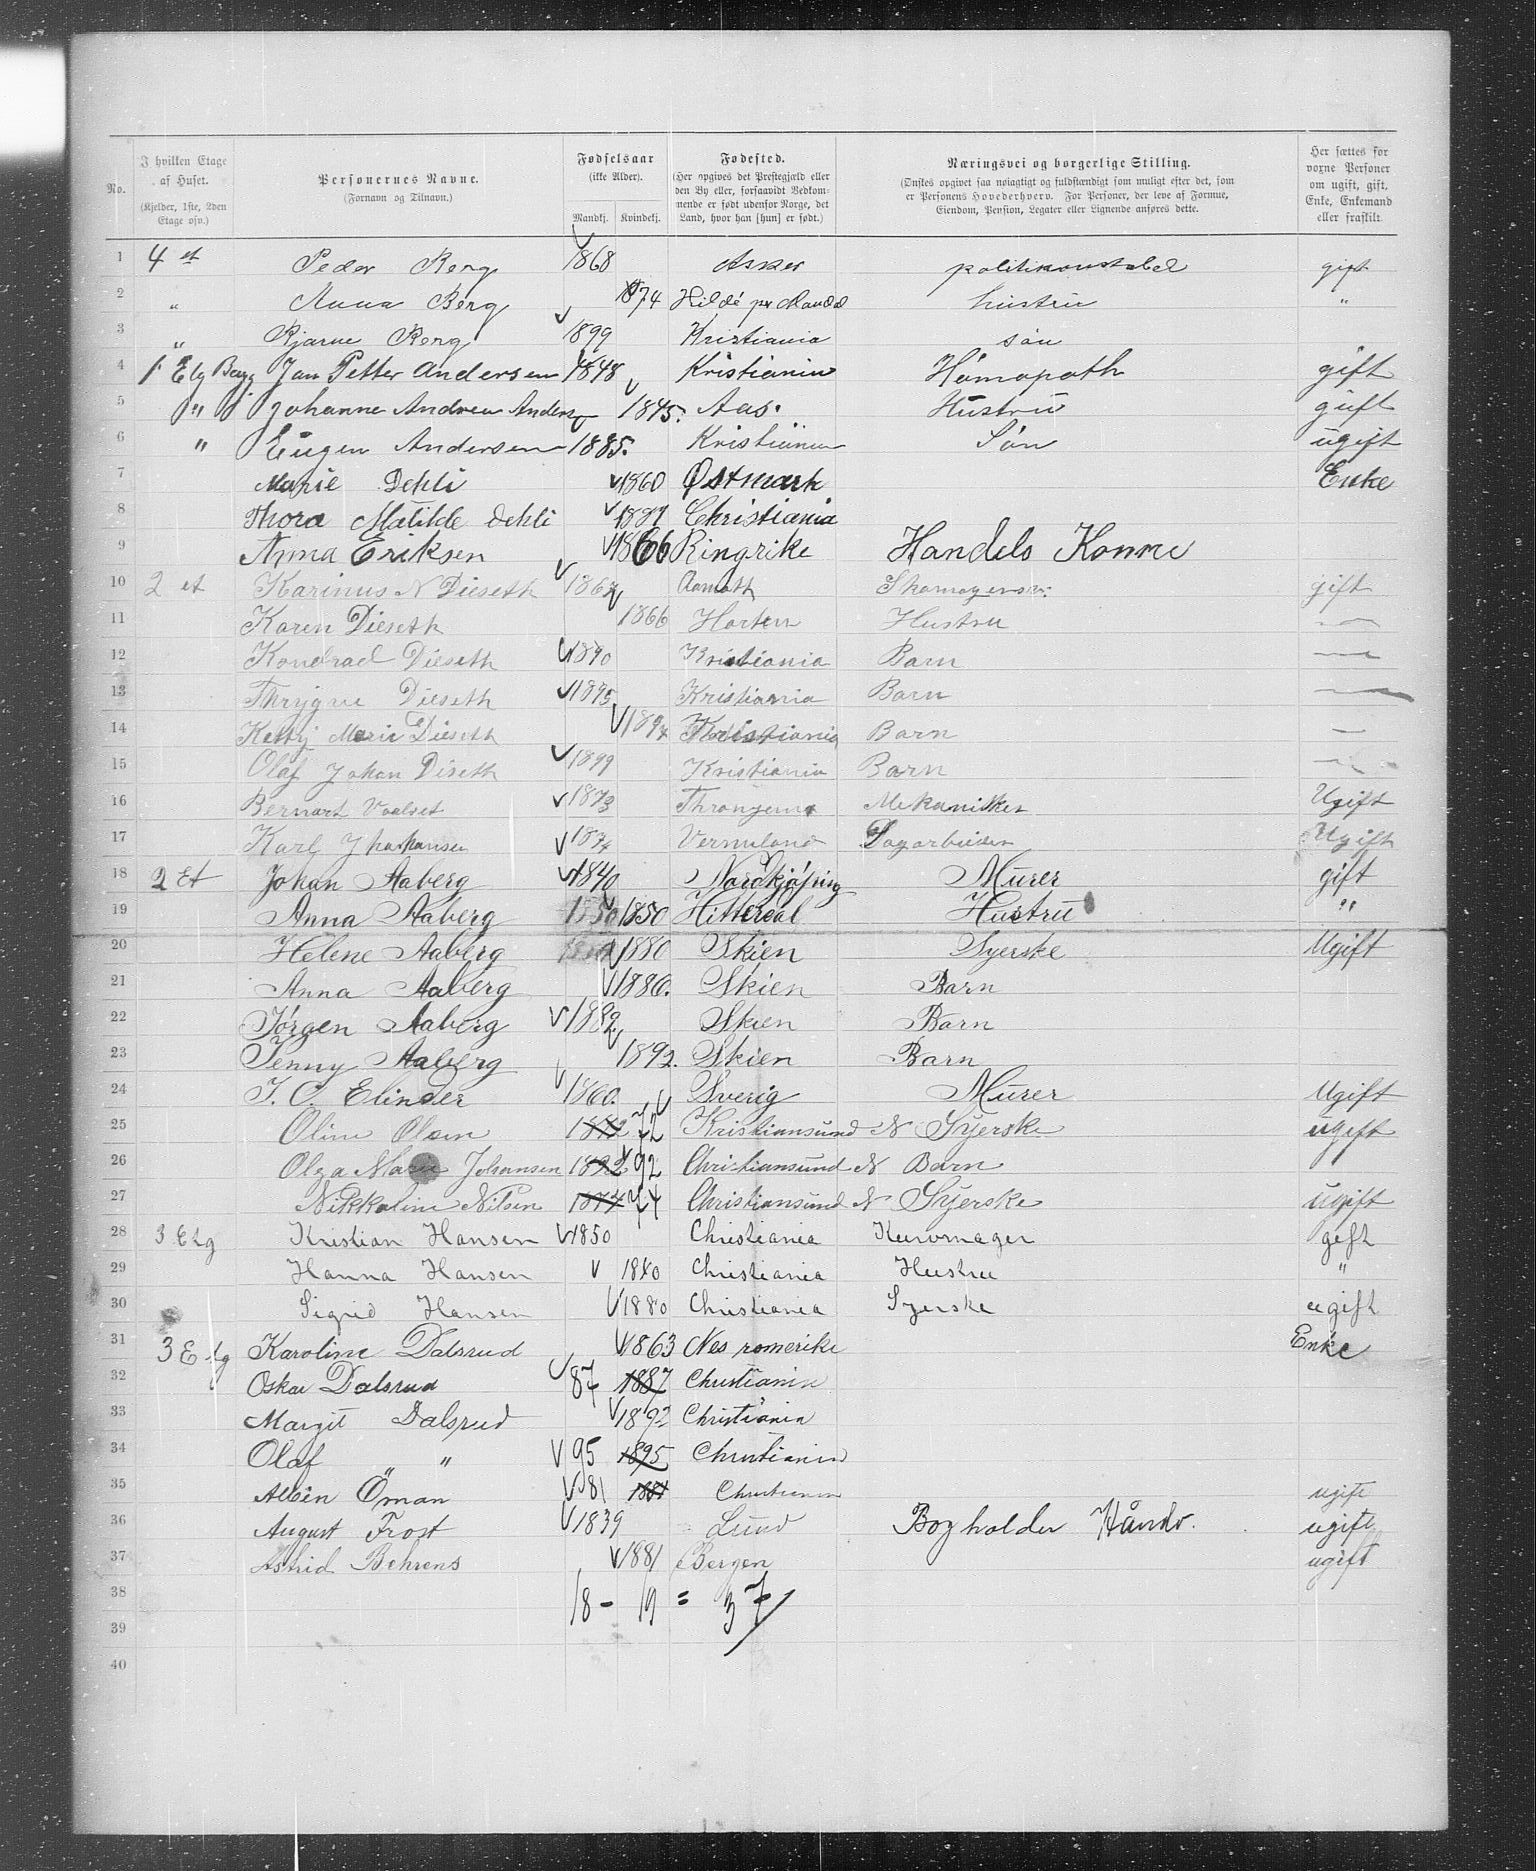 No. | I hvilken Etage af Huset. (Kjelder, 1ste, 2den Etage osv.) | Personernes Navne. (Fornavn og Tilnavn.) | Fødselsaar (ikke Alder). Mandkj. Kvindekj. | Fødested. (Her opgives det Prestegjæld eller den By eller, forsaavidt Vedkommende er født udenfor Norge, det Land, hvor han [hun] er født.) | Næringsvei og borgerlige Stilling. (Ønskes opgivet saa nøiagtigt og fuldstændigt som muligt efter det, som er Personens Hovederhverv. For Personer, der leve af Formue, Eiendom, Pension, Legater eller Lignende anføres dette. | Her sættes for voxne Personer om ugift, gift, Enke, Enkemand eller fraskilt.
1 4 et Peder Berg 1868 Asker politikonstabel gift
2 " Anna Berg 1874 Hustru "
3 " Bjarne Berg 1899 Kristiania søn
4 1 Etg Jan Petter Andersen 1848 Kristiania Hómøpath gift
5 " Johanne Andrea 1845. Aas. Hustru gift
6 " Eugen Andersen 1885. Kristiania Søn ugift
7 Marie Dehli 1860 Østmark Enke
8 Thora Matilde Dehli Christiania
9 Anna Eriksen 1866 Ringrike Handels Konne
10 2 et Karinus N Dieseth gift
11 Karen Dieseth 1866 Horten Hustru
12 Kondrad Dieseth 1890 Kristiania Barn
13 Thrygve Dieseth 1895 Kristiania Barn
14 Ketty Marie Dieseth 1897 Kristiania Barn
15 Olaf Johan Diseth 1899 Kristiania Barn
16 Bernart 1873 Mekanisker Ugift
17 Karl Vermland Ugift
18 2 Et Johan Aaberg 1840 Murer gift
19 Anna Aaberg 1850 Hitterdal Hustru "
20 Helene Aaberg 1880 Skien Syerske Ugift
21 Anna Aaberg 1886. Skien Barn
22 Jörgen Aaberg 1882 Skien Barn
23 Jenny Aaberg 1892. Skien Barn
24 Elinder 1860. Sverig Murer Ugift
25 Oline Olsen 1872 72 Kristiansund N Syerske ugift
26 Olga Marie Johansen 1892 92 Christiansund N Barn
27 Nikkoline Nilsen 1874 74 Christiansund N Syerske ugift
28 3 Etg Kristian Hansen 1850 Christiania Kurvmager gift
29 Hanna Hansen 1840 Christiania Hustru "
30 Sigrid Hansen 1880 Christiania Syerske ugift
31 3 Etg Karoline Dalsrud 1863 Nes romerike Enke
32 Oskar Dalsrud 87 1887 Christiania
33 Margit Dalsrud 1892 Christiania
34 Olaf " " 95 1895 Christiania
35 Albin Öman 81 1881 Christiania ugift
36 August Frost 1839 Lund Bogholder Håndv. ugift
37 Astrid Behrens 1881 Bergen ugift
38 18 - 19 = 37
39
40